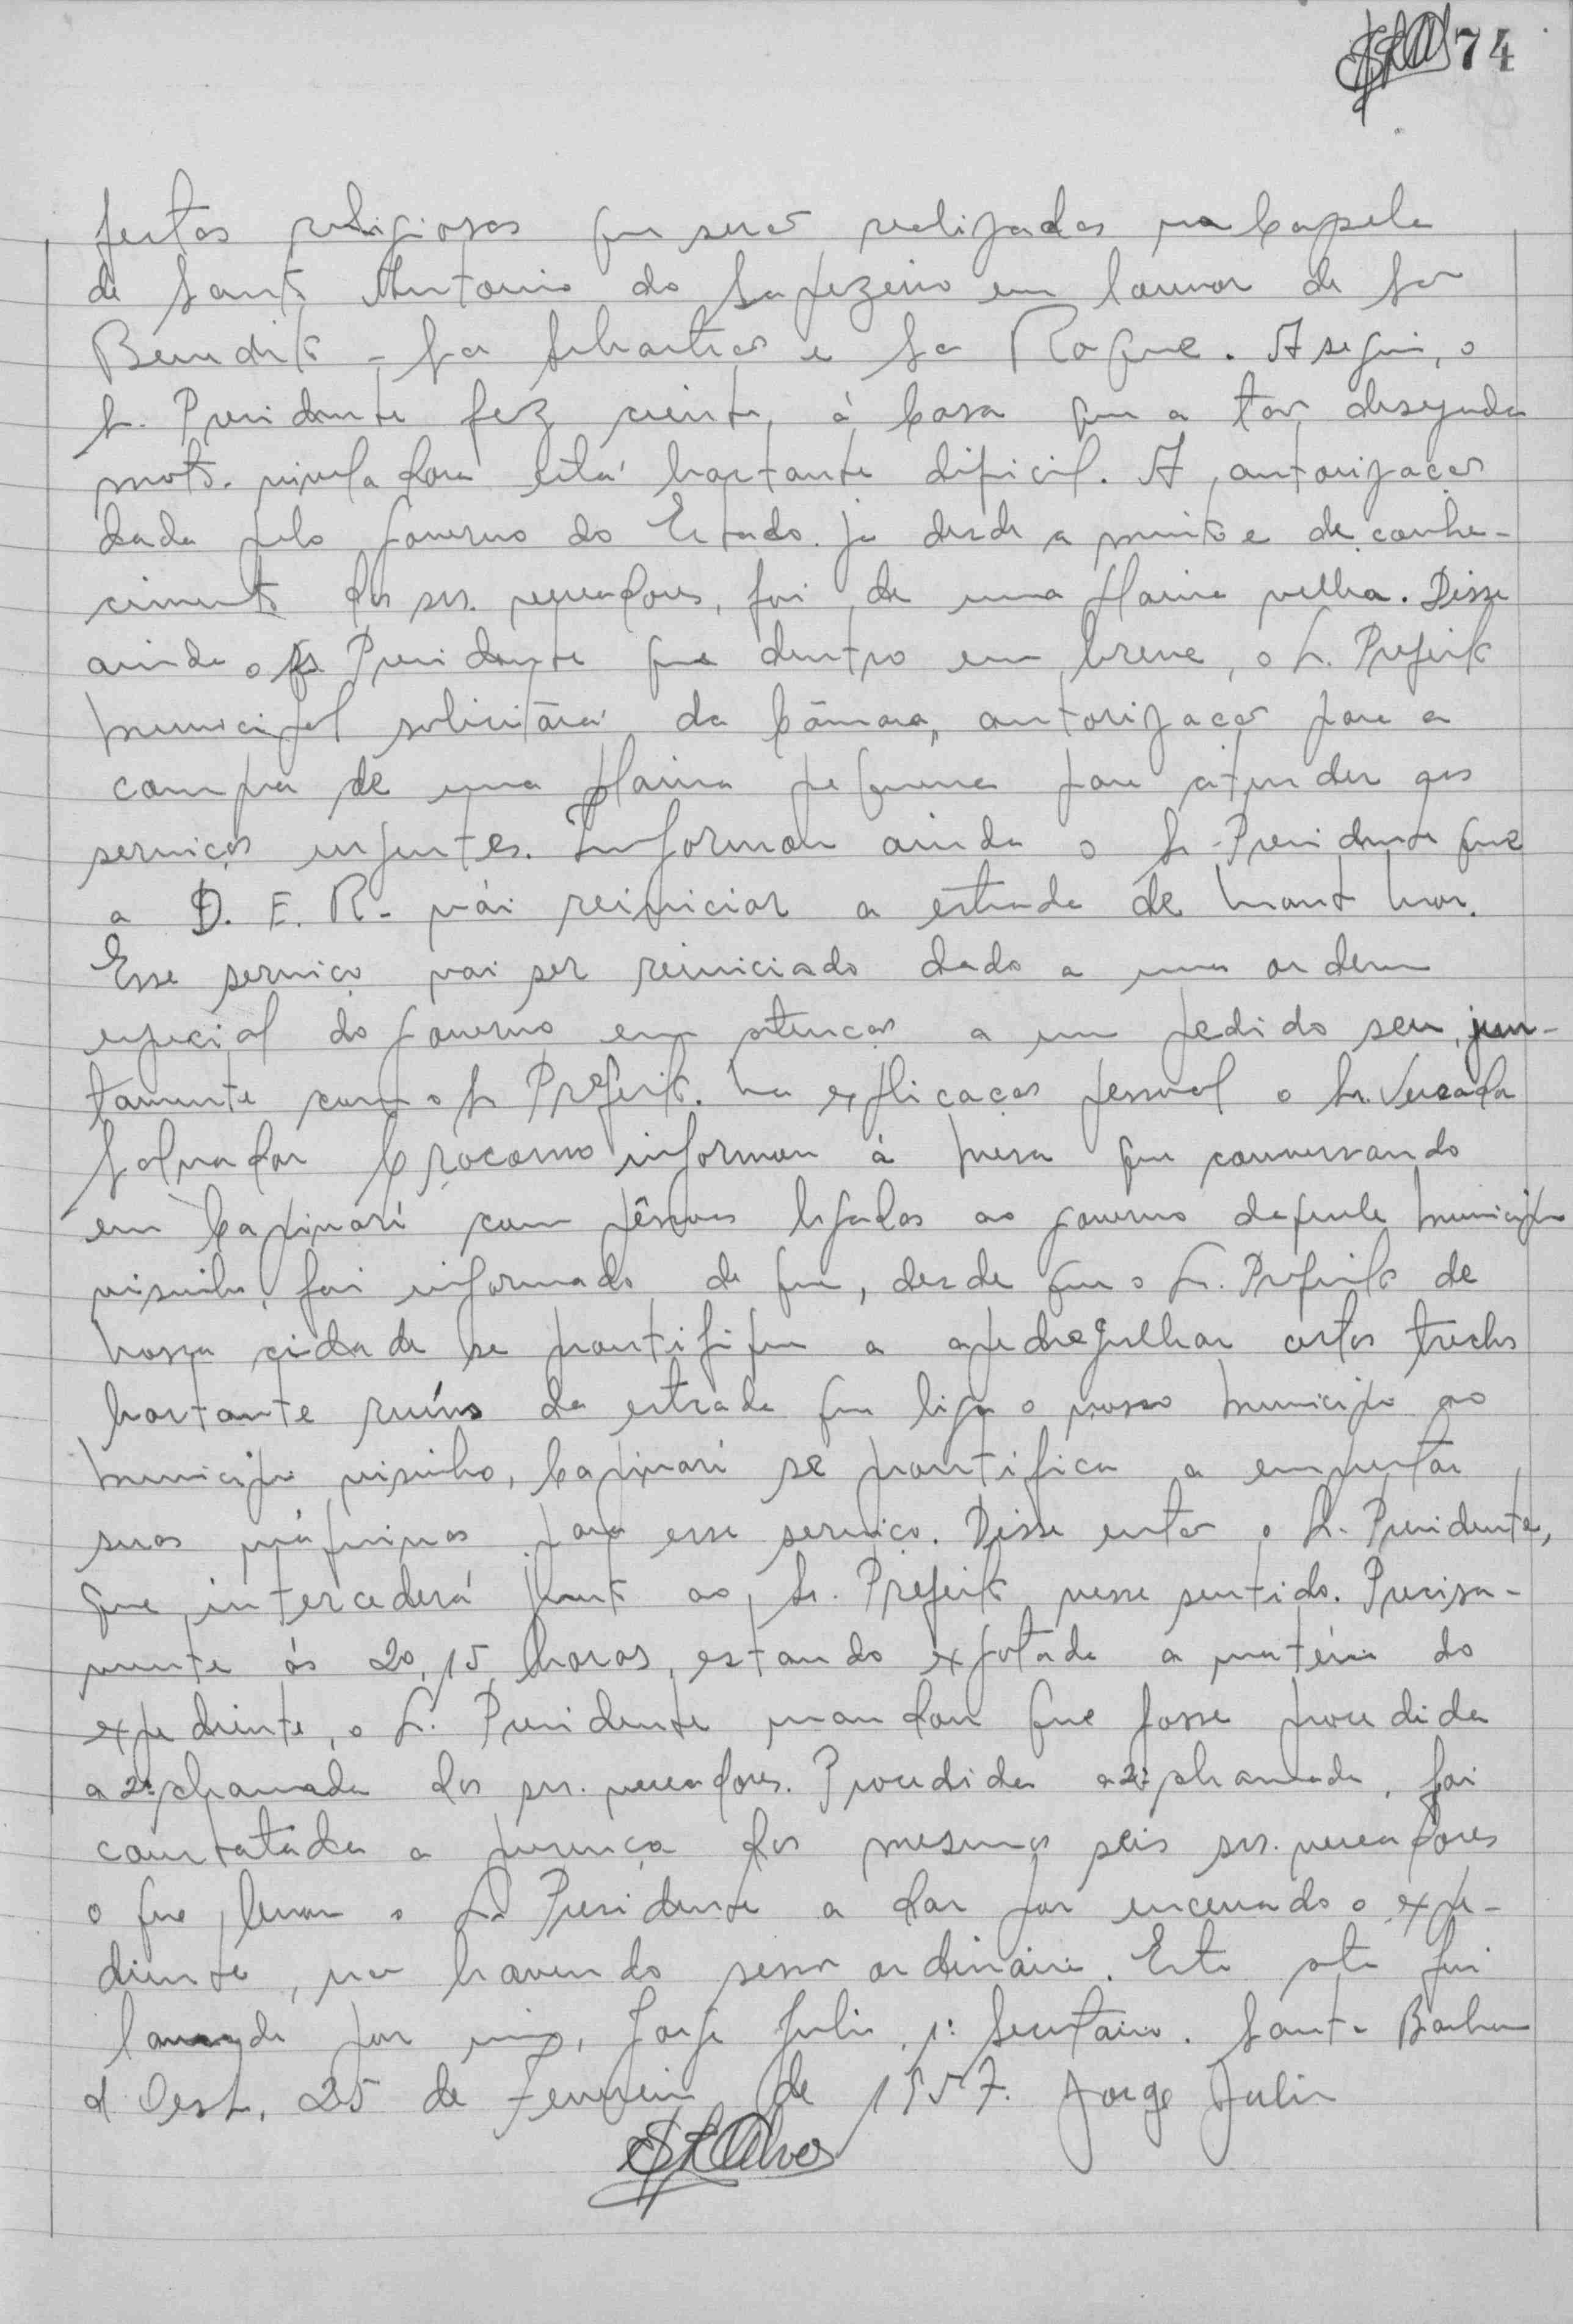 74
festas religiosas que serão realizadas na Capela
de Santo Antonio do Sapezeiro em louvor de São
Benedito - São Sebastião e São Roque. A seguir, o
Sr. Presidente fez ciente á Casa que a tão desejada
moto-niveladora está bastante dificil. A autorização
dada pelo Governo do Estado já desde a muito e de conhe-
cimento dos srs. vereadores, foi de uma plaina velha. Disse
ainda o Sr Presidente que dentro em breve, o Sr. Prefeito
Municipal solicitará da Câmara, autorização para a
compra de uma plaina pequena para atender aos
serviços urgentes. Informou ainda o Sr. Presidente que
a D. E. R. vái reiniciar a estrada de Monte Mor.
Esse serviço vai ser reiniciado dado a uma ordem
especial do Governo em atenção a um pedido seu, jun-
tamente com o Sr Prefeito. Na explicação pessoal o Sr. Vereador
Salvador Crócomo informou á Mesa que conversando
em Capivarí com pêssoas ligadas ao governo daquele Municipio
visinho, foi informado de que, desde que o Sr. Prefeito de
nossa cidade se prontifique a apedregulhar certos trechos
bastante ruíns da estrada que liga o nosso Municipio ao
Municipio visinho, Capivari se prontifica a emprestar
suas máquinas para esse serviço. Disse então o Sr. Presidente,
que intercederá junto ao Sr. Prefeito nesse sentido. Precisa-
mente ás 20,15 horas, estando exgotada a matéria do
expediente, o Sr. Presidente mandou que fosse procedida
a 2ª chamada dos srs. vereadores. Procedida a 2ª chamada, foi
constatada a presença dos mesmos seis srs. vereadores
o que levou o Sr Presidente a dar por encerrado o expe-
diente, não havendo sessão ordinária. Esta ata foi
lavrada por mim, Jorge Julio, 1º Secretário. Santa Barbara
d'Oeste, 25 de Fevereiro de 1957. Jorge Julio